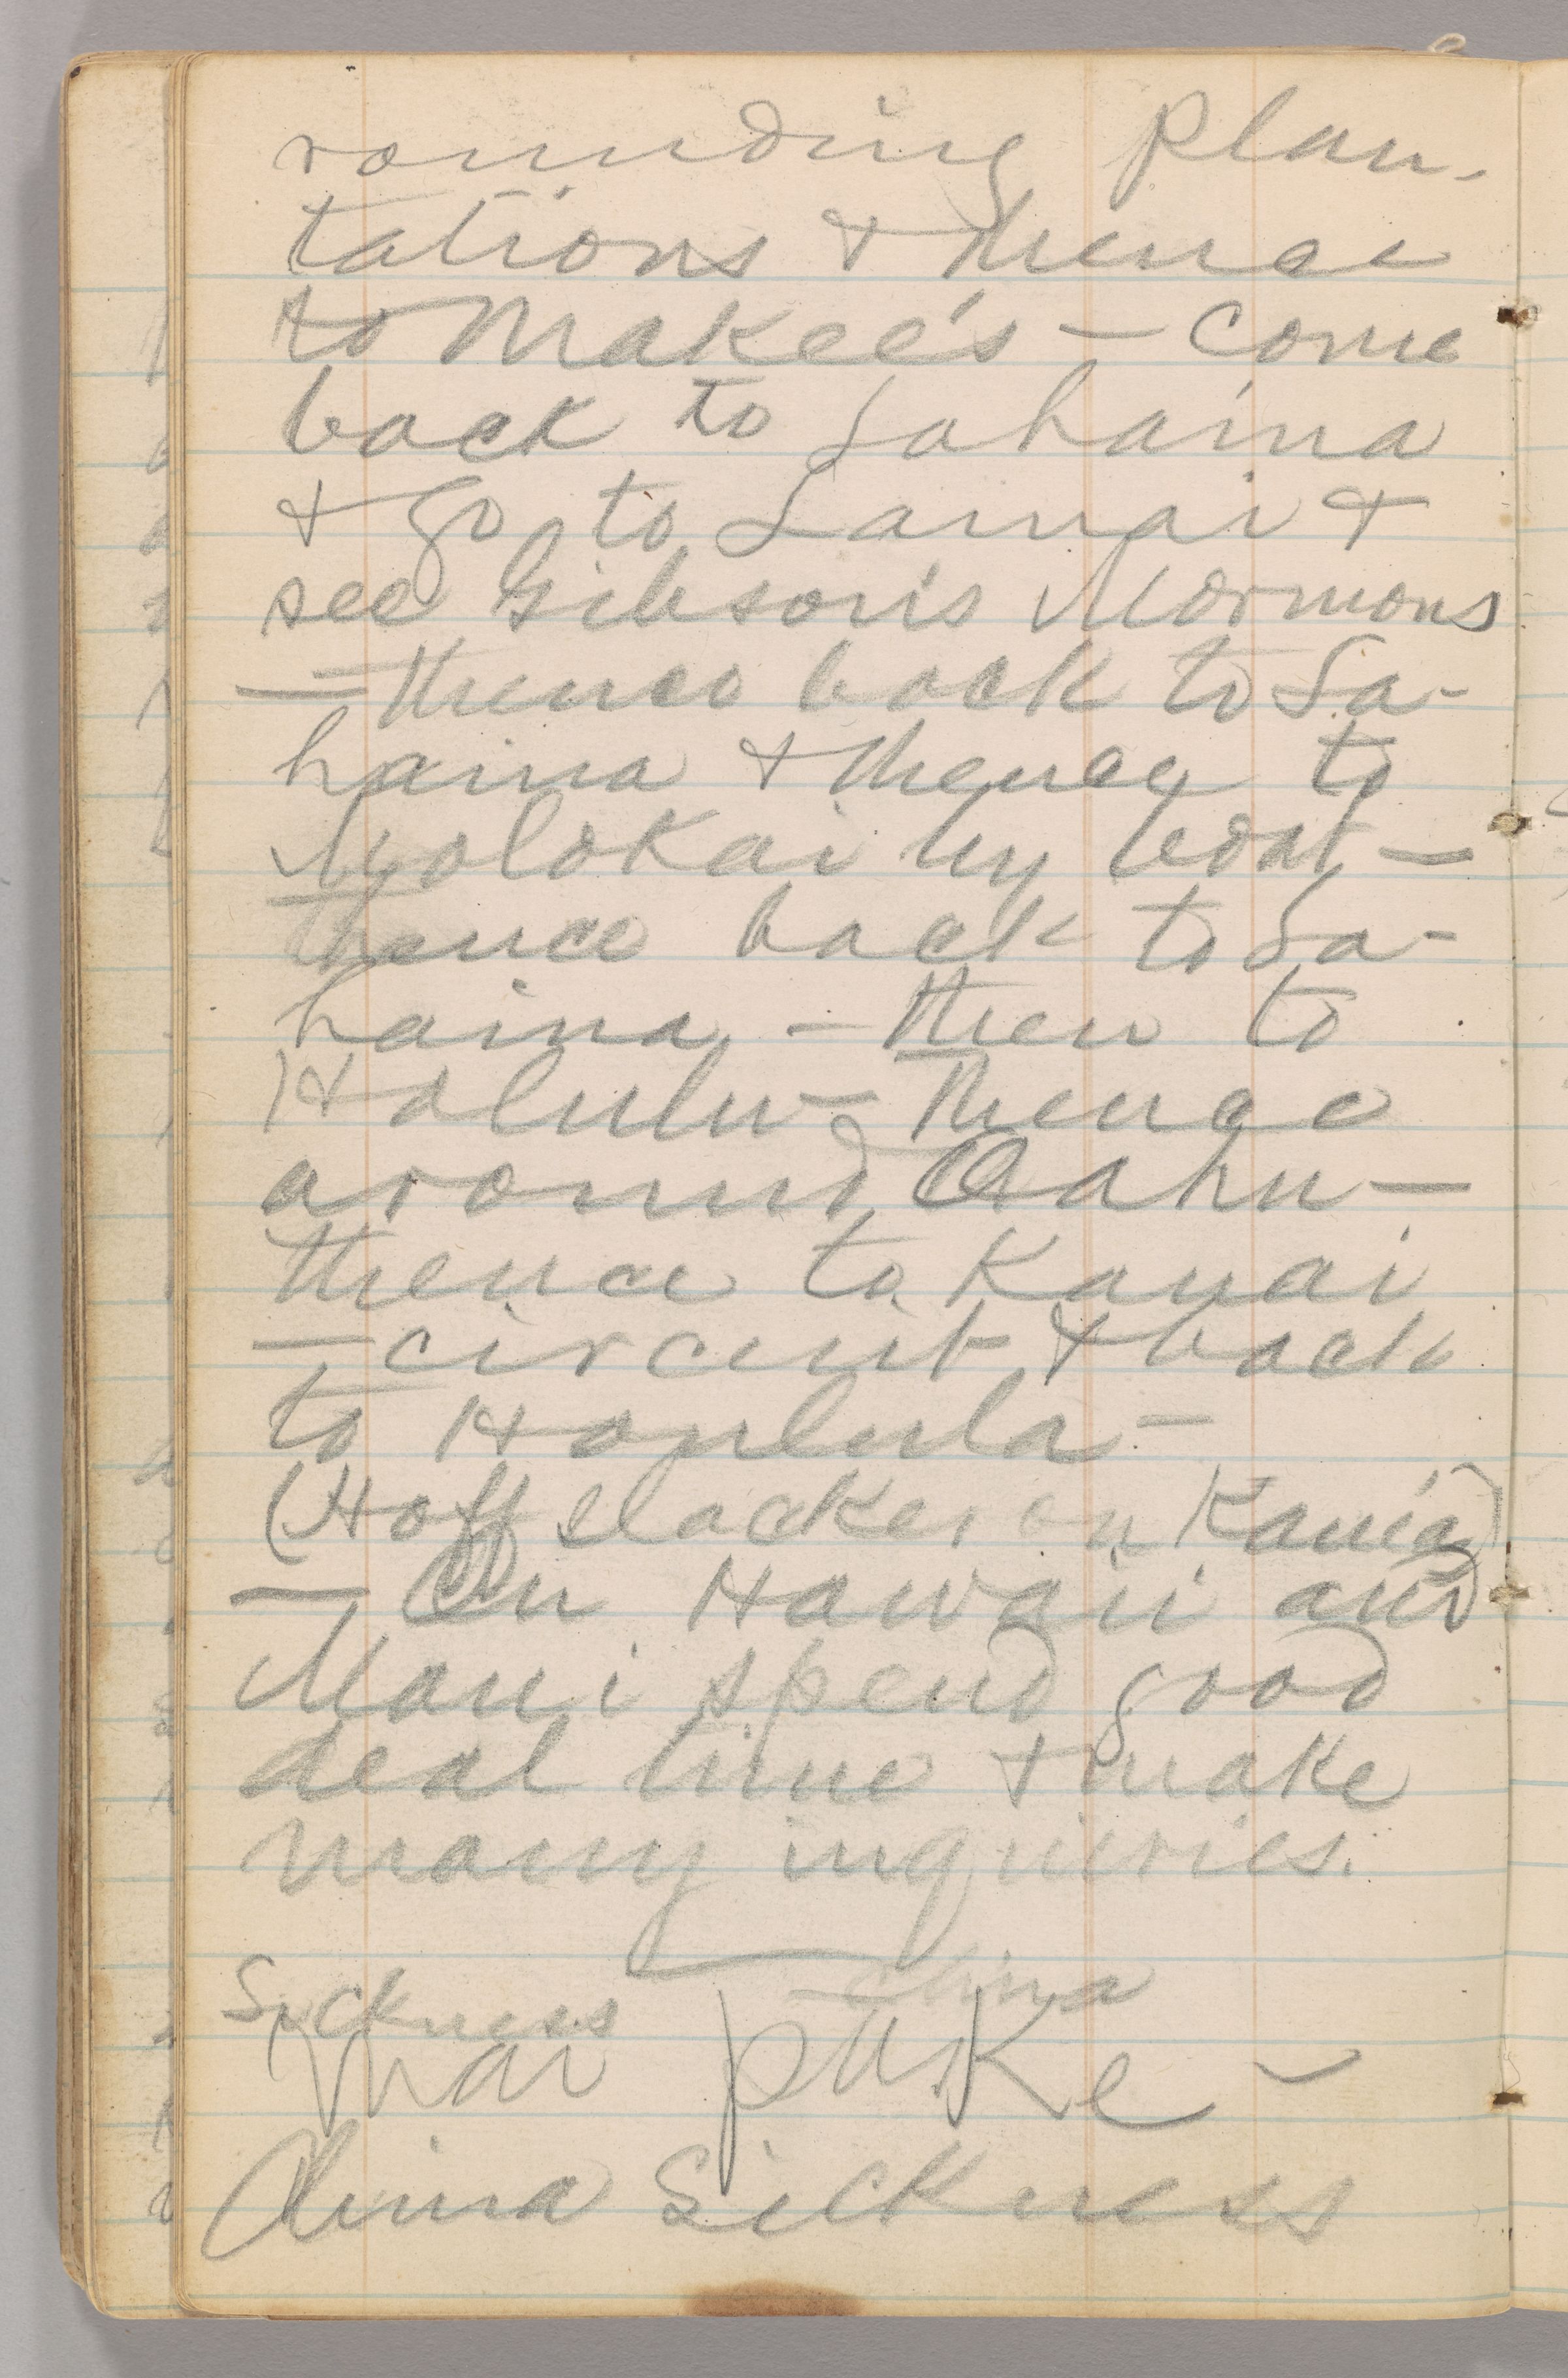 rounding plan-
tations & thence
to Makee's — come
back to Lahaina
& go to Lanai &
see Gibson's Mormons
— thence back to La-
haina & thence to
Molokai by boat —
thence back to La-
haina — then to
Holulu — Thence
around Oahu —
thence to Kauai
— circuit & back
to Honlulu —
(Hoffslacker on Kauia)
— On Hawaii and
Maui spend good
deal time & make
many inquiries.
Sickness china
Mai Pake —
China Sickness